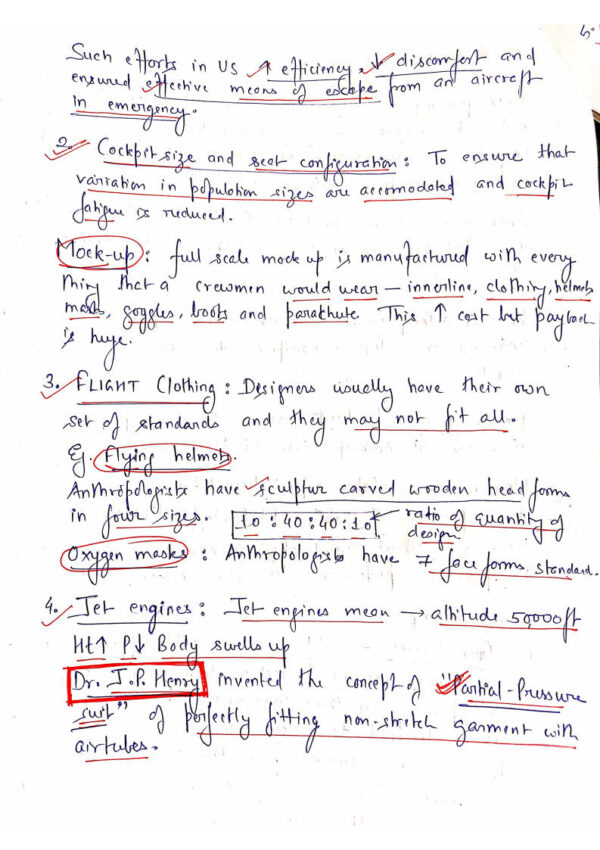 Such efforts in US ↑ efficiency, ↓ discomfort and
ensured effective means of escape from an aircraft
in emergency.
2. Cockpit size and seat configuration : To ensure that
variation in population sizes are accomodated and cockpit
fatigue is reduced.
Mock-up : full scale mock up is manufactured with every
thing that a crewmen would wear — innerline, clothing, helmets
masks, goggles, boots and parachute This ↑ cost but payback
is huge.
3. FLIGHT Clothing : Designers usually have their own
set of standards and they may not fit all.
Eg. Flying helmets.
Anthropologists have sculptur carved wooden head forms
in four sizes. 10 : 40 : 40 : 10 ← ratio of quantity of
design
Oxygen masks : Anthropologists have 7 face forms standard.
4. Jet engines : Jet engines mean → altitude 50,000ft
Ht↑ P↓ Body swells up
Dr. J.P. Henry invented the concept of "Partial-Pressure
suit" of perfectly fitting non-stretch garment with
airtubes.